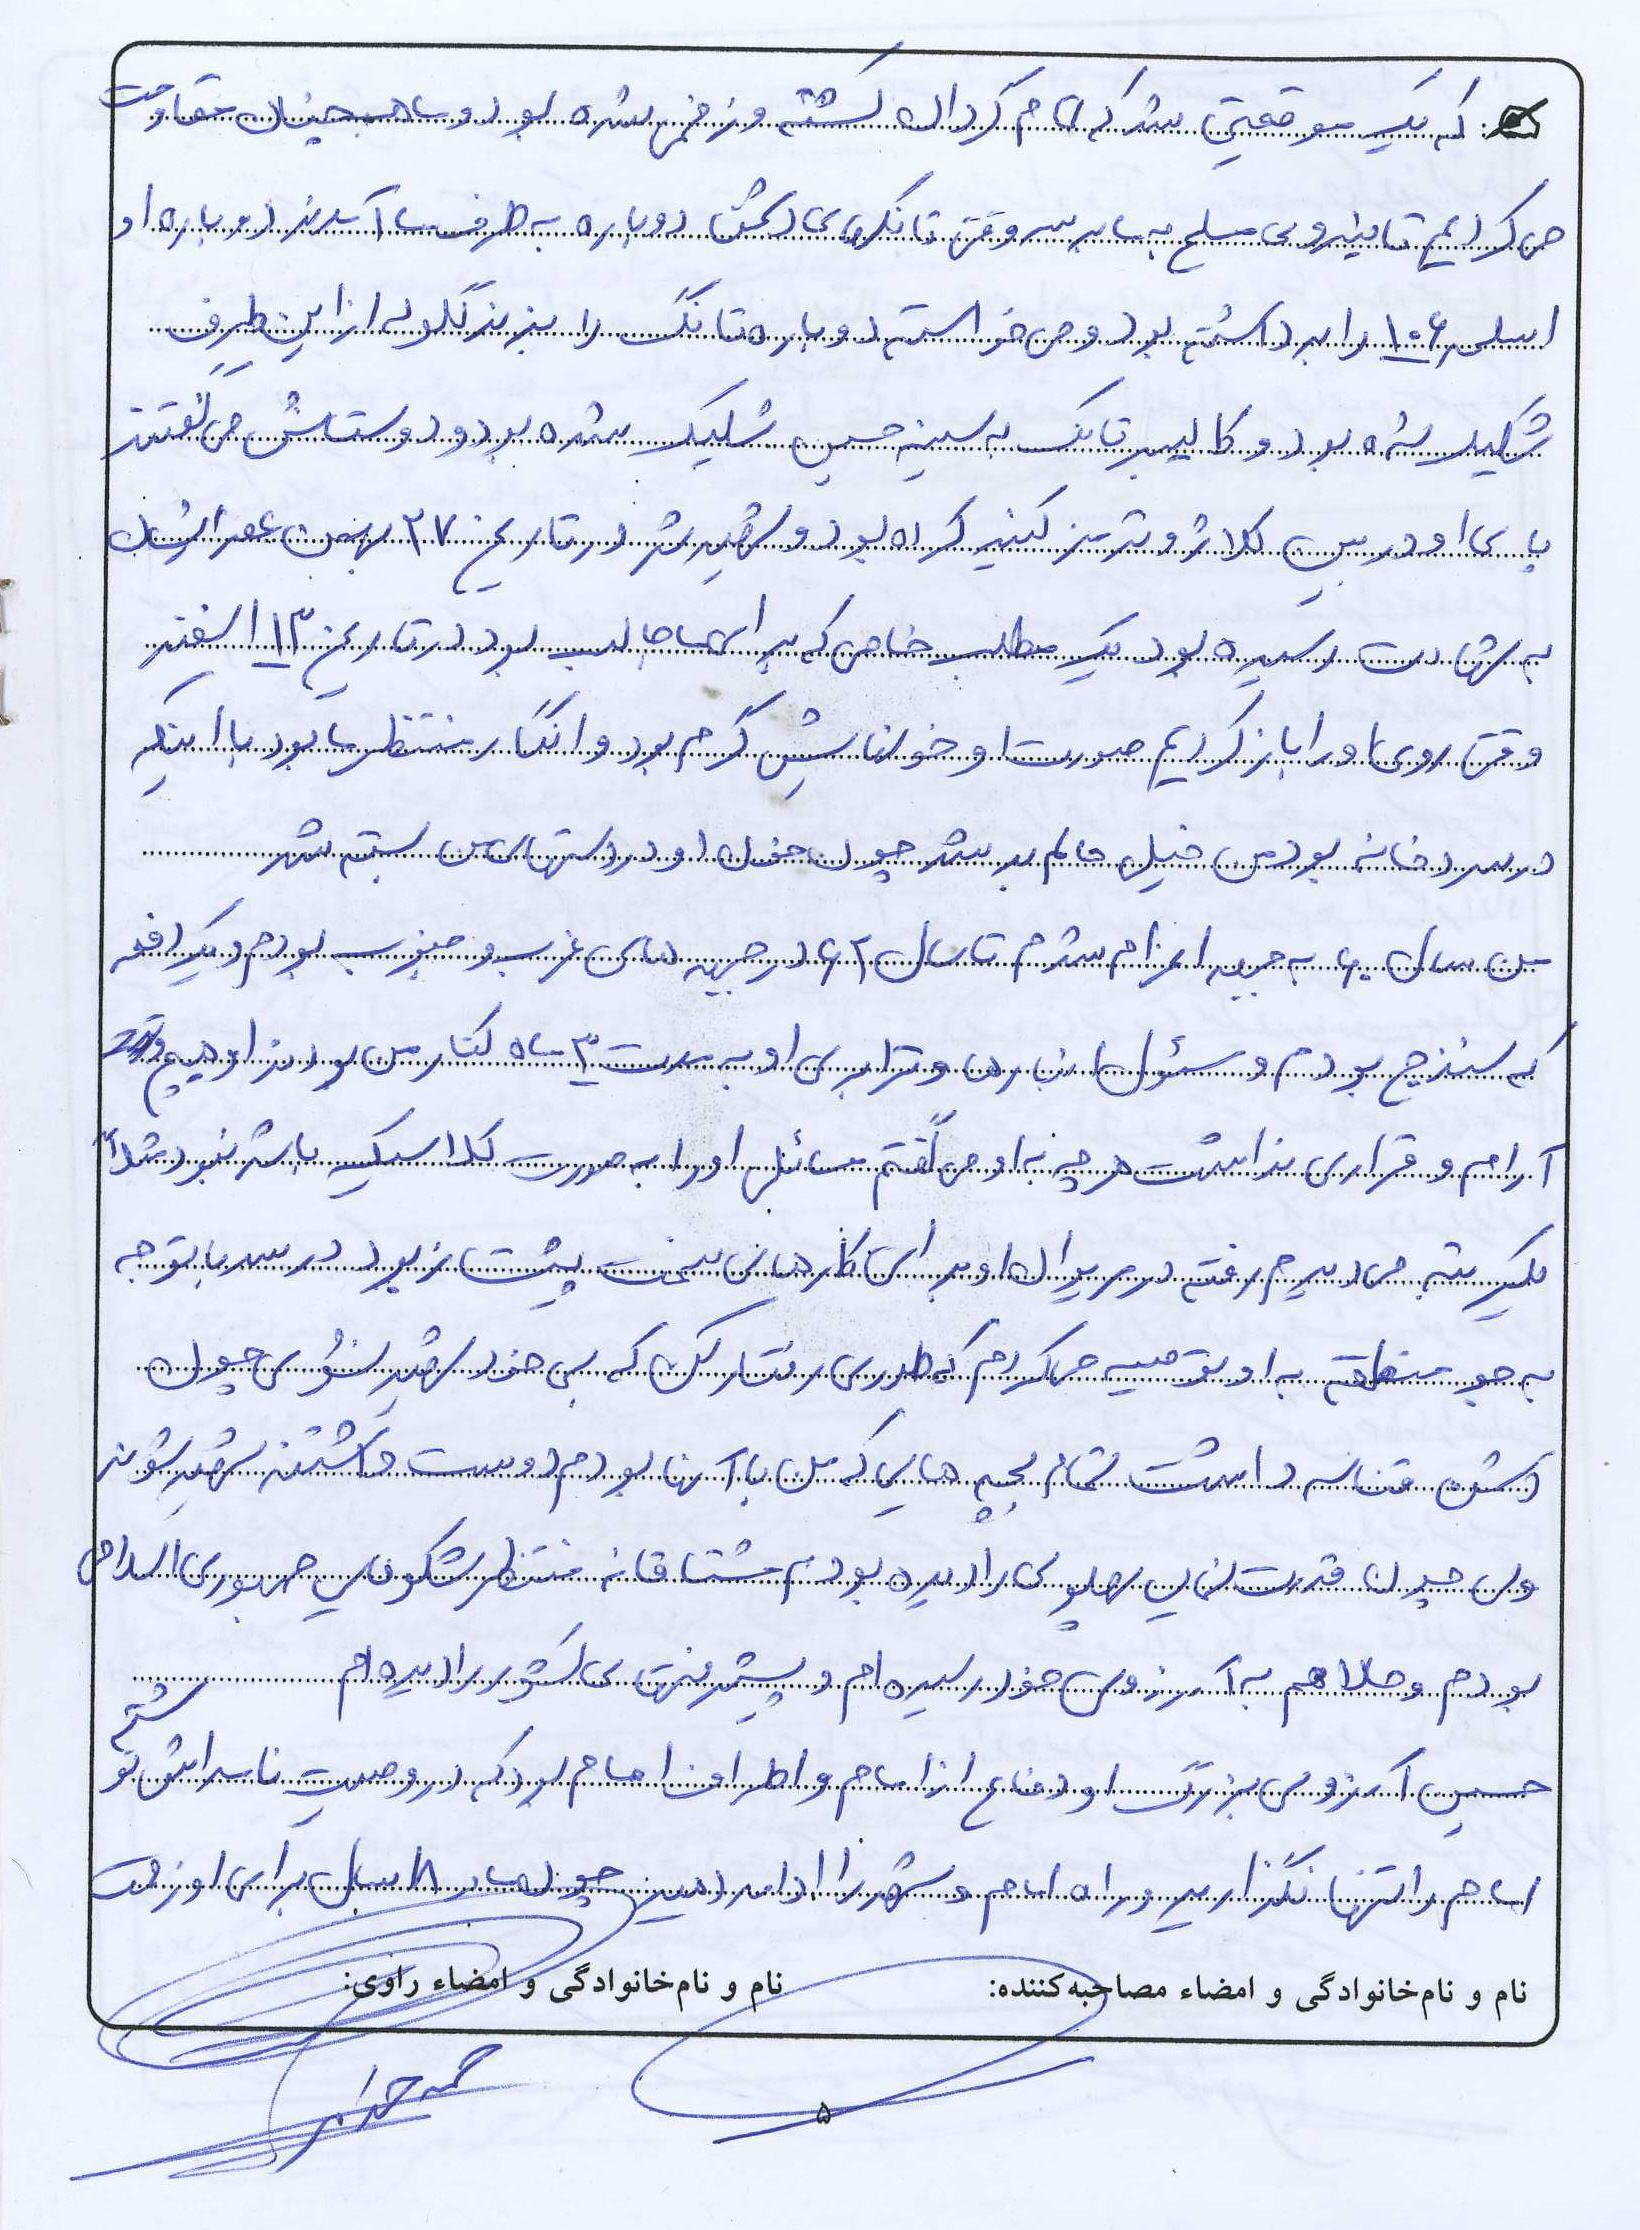 که یک موقعیتی شد که تمام گردان کشته و زخمی شده بود و ما همچنان مقاومت
می کردیم تا نیروی مسلح به ما برسد وقتی تانکهای دشمن دوباره به طرف ما آمدند دوباره او
اسلحه ۱۰۶ را برداشته بود و می خواسته دوباره تانک را بزند گلوله از این طرف
شلیک شده بود و کالیبر تانک به سینه حسین شلیک شده بود و دوستاش می گفتند
پای او در بین کلاژ و ترمز گیر کرده بود و شهید شد در تاریخ ۲۷ بهمن عصر ایشان
به شهادت رسیده بود یک مطلب خاصی که برای ما جالب بود در تاریخ ۱۳ اسفند
وقتی روی او را باز کردیم صورت او خونهایش گرم بود و انگار منتظر ما بود با اینکه
در سردخانه بود من خیلی حالم بد شد چون خون او در دستهای من بسته شد
من سال ۶۰ به جبهه اعزام شدم تا سال ۶۲ در جبهه های غرب و جنوب بودم و یک دفعه
که سنندج بودم و مسئول انبارها و ترابری او به مدت ۳ ماه کنار من بود و او هیچ وقت
آرام و قراری نداشت هر چه به او می گفتم مسائل او را به صورت کلاسیک باشد نبود مثلاً
یکمرتبه می دیدم رفته در میدان او برای کارهای سخت پیشتاز بود در سد با توجه
به جو منطقه به او توصیه می کردم که طوری رفتار کن که بی خود شهید نشوی چون
دشمن قناسه داشت تمام بچه هایی که من با آنها بودم دوست داشتند شهید شوند
ولی چون قدرت نمایی پهلوی را دیده بودم مشتاقانه منتظر شکوفایی جمهوری اسلامی
بودم و حالا هم به آرزوی خود رسیده ام و پیشرفتهای کشور را دیده ام
حسین آرزوی بزرگ او دفاع از امام و اطراف امام بود که در وصیت نامه اش نوشتم
امام را تنها نگذارید و راه امام و شهدا را ادامه دهید چون مادر ۱۸ سال برای او زحمت
نام و نام‌خانوادگی و امضاء مصاحبه‌کننده: نام و نام‌خانوادگی و امضاء راوی:
۵